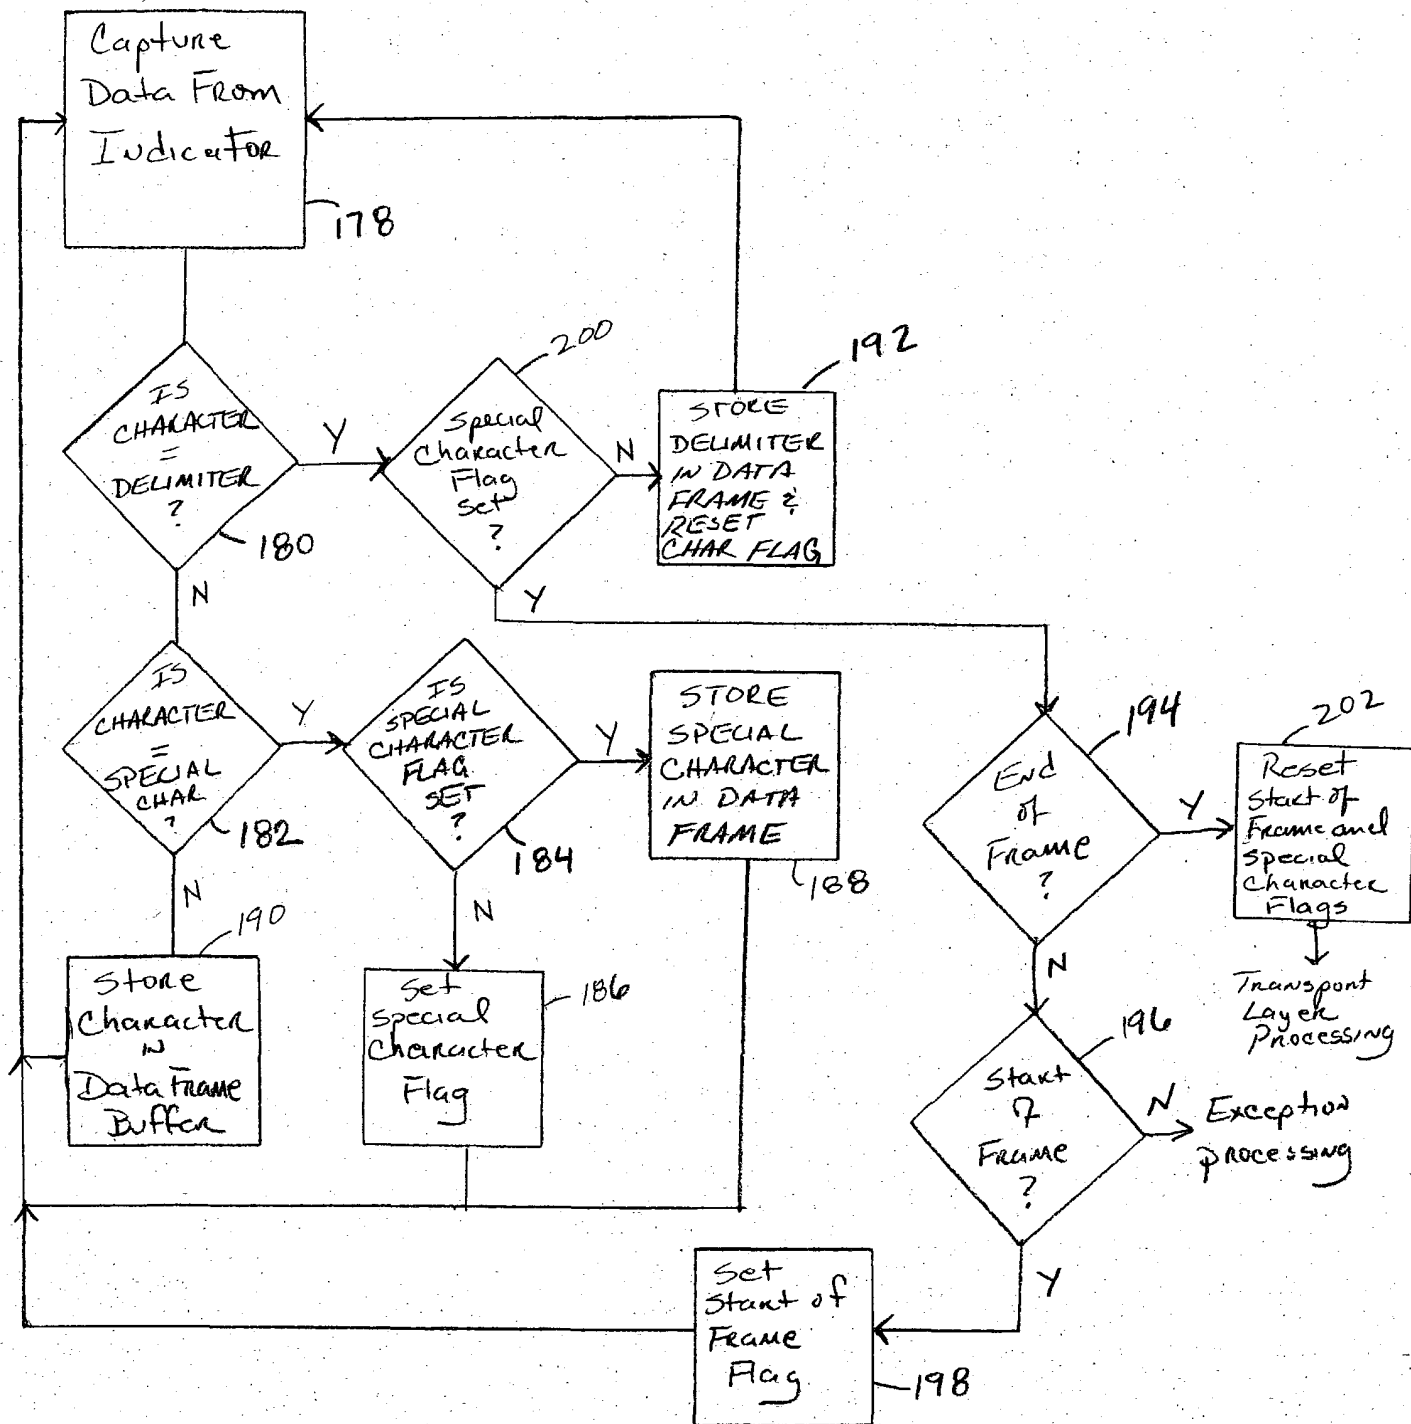 Capture
Data From
Indicator
178
IS
CHARACTER
=
DELIMITER
?
180
Y
N
200
Special
Character
Flag
Set
?
N
Y
192
STORE
DELIMITER
IN DATA
FRAME &
RESET
CHAR FLAG
IS
CHARACTER
=
SPECIAL
CHAR
?
182
Y
N
IS
SPECIAL
CHARACTER
FLAG
SET
?
184
Y
N
STORE
SPECIAL
CHARACTER
IN DATA
FRAME
188
194
End
of
Frame
?
Y
N
202
Reset
Start of
Frame and
Special
Character
Flags
Transport
Layer
Processing
190
Store
Character
IN
Data Frame
Buffer
Set
Special
Character
Flag
186
196
Start
of
Frame
?
N
Exception
Processing
Y
Set
Start of
Frame
Flag
198